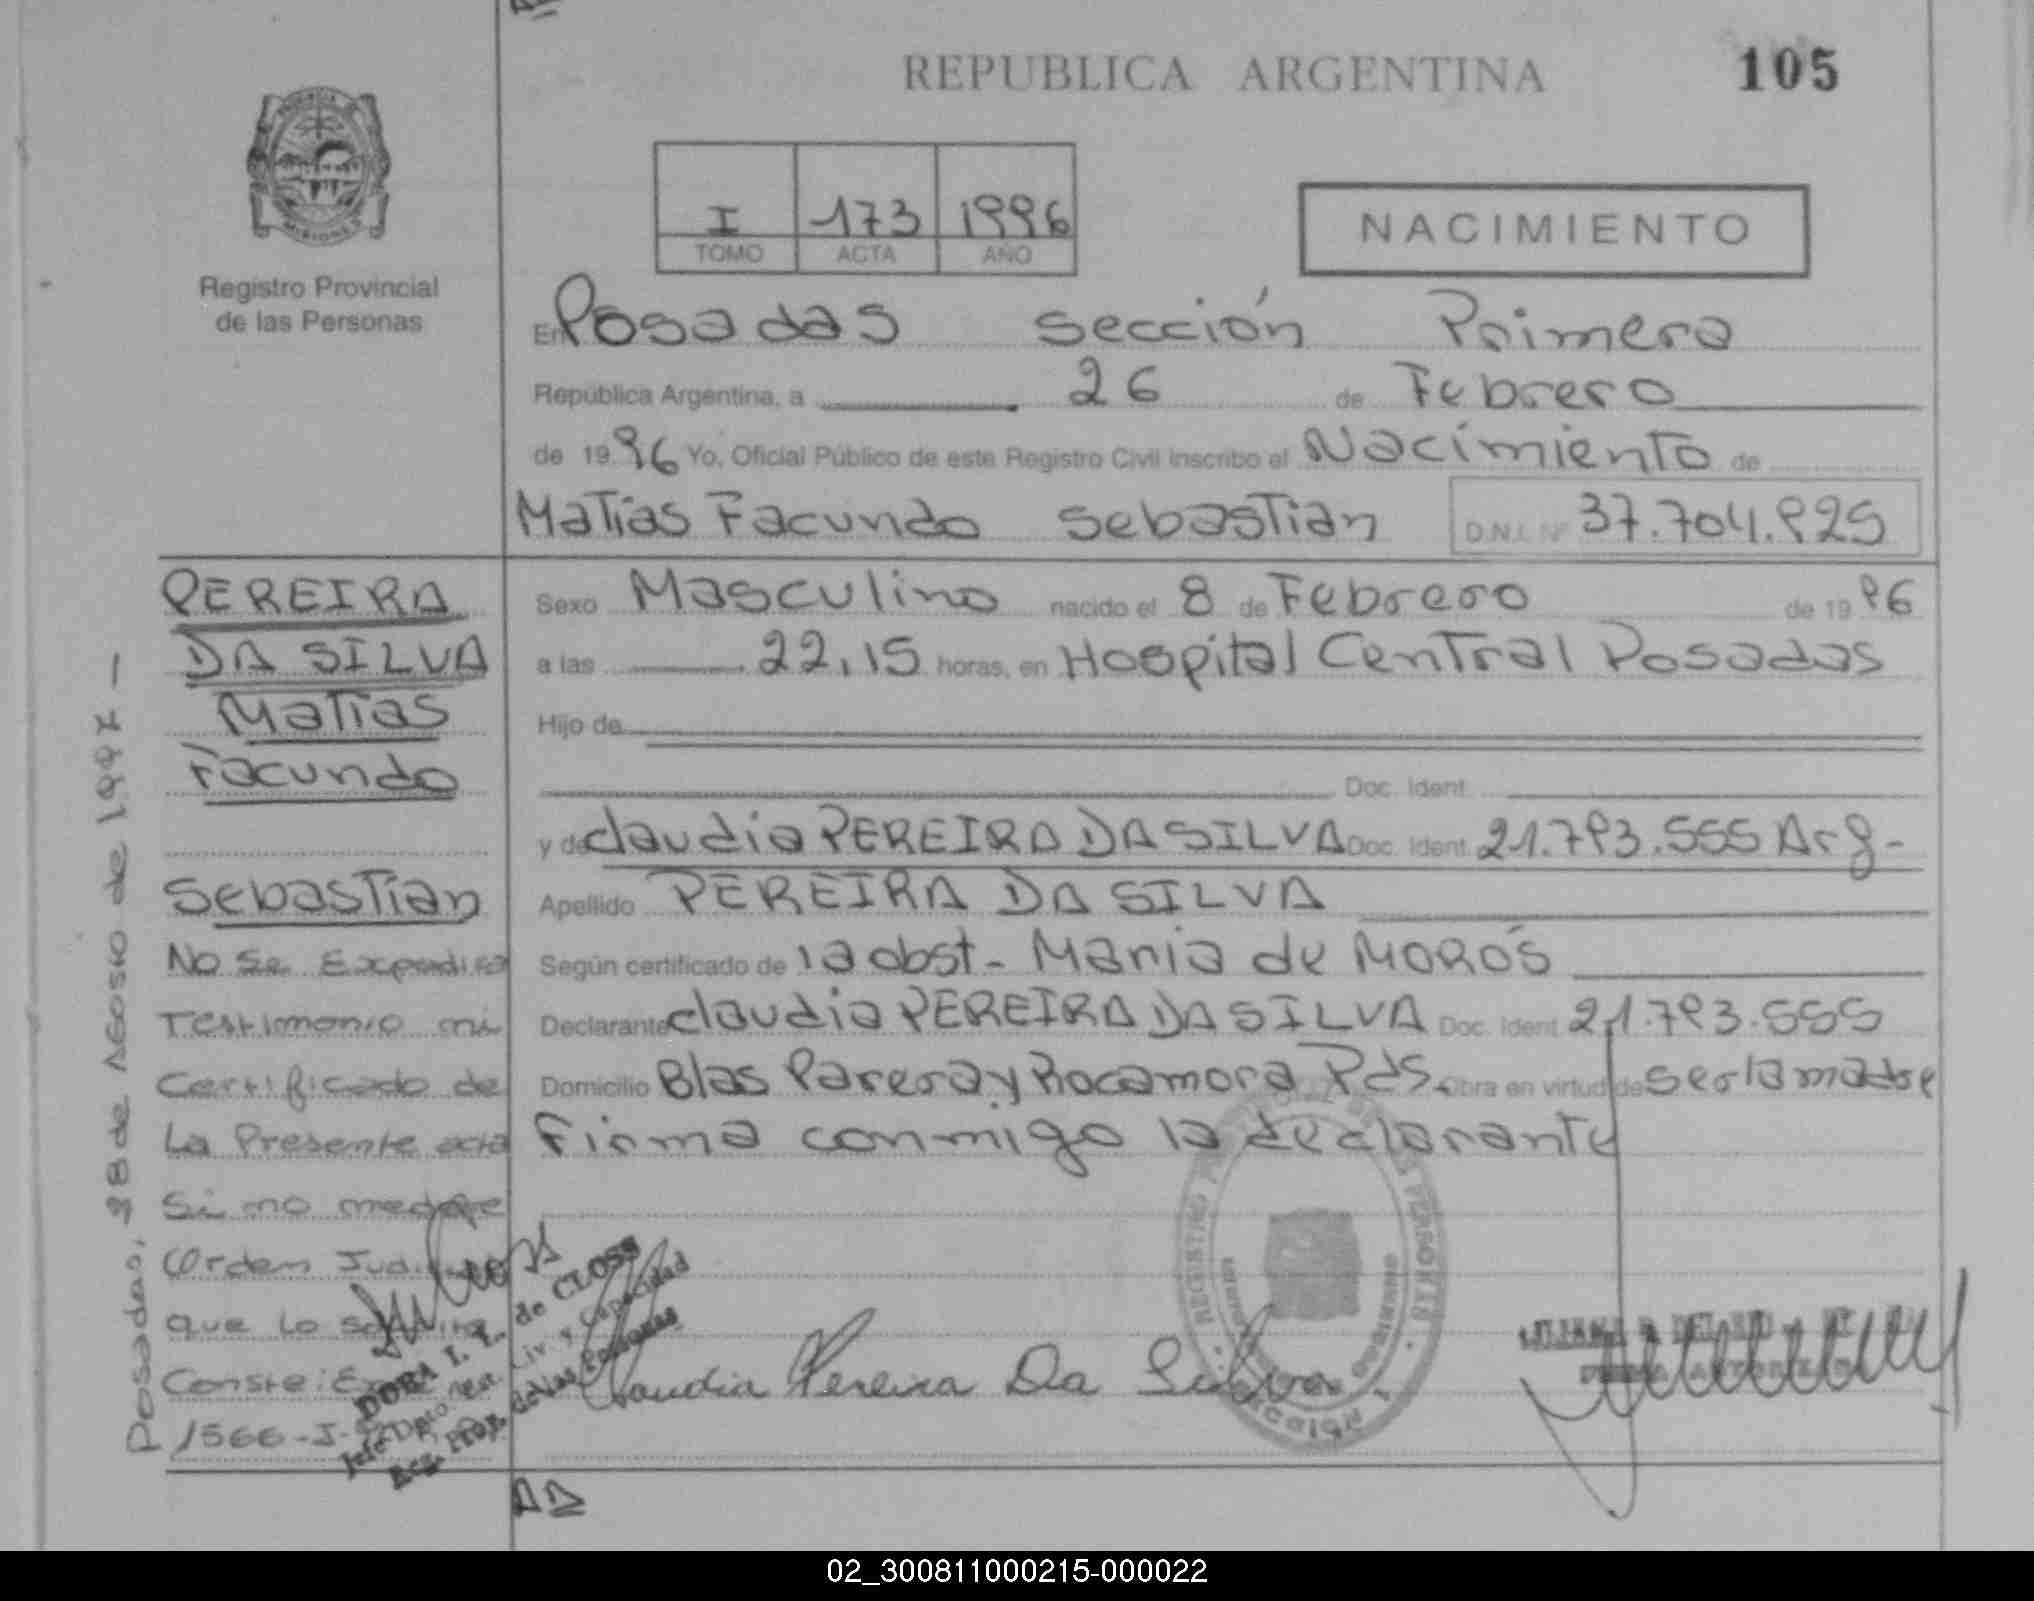 REPUBLICA ARGENTINA
105
I 173 1996
TOMO ACTA AÑO
NACIMIENTO
MISIONES
Registro Provincial
de las Personas
En Posadas Sección Primera
República Argentina, a 26 de Febrero
de 1996 Yo, Oficial Público de este Registro Civil inscribo el Nacimiento de
Matías Facundo Sebastian D.N.I. Nº 37.704.925
PEREIRA
DA SILVA
Matías
Facundo
Sebastian
No Se Expedira
Testimonio ni
Certificado de
La Presente acta
Si no media
Orden
que lo
Conste:
1566-J-
Posadas, 28 de Agosto de 1997 -
Sexo Masculino nacido el 8 de Febrero de 1996
a las 22,15 horas, en Hospital Central Posadas
Hijo de
Doc. Ident.
y de claudia PEREIRA DA SILVA Doc. Ident. 21.793.555 Arg-
Apellido PEREIRA DA SILVA
Según certificado de la obst- Maria de MORÓS
Declarante claudia PEREIRA DA SILVA Doc. Ident. 21.793.555
Domicilio Blas Parera y Rocamora Pds. Obra en virtud de ser la madre
Firma conmigo la declarante
DORA I. L. de CLOSS
Claudia Pereira Da Silva
AD
02_300811000215-000022